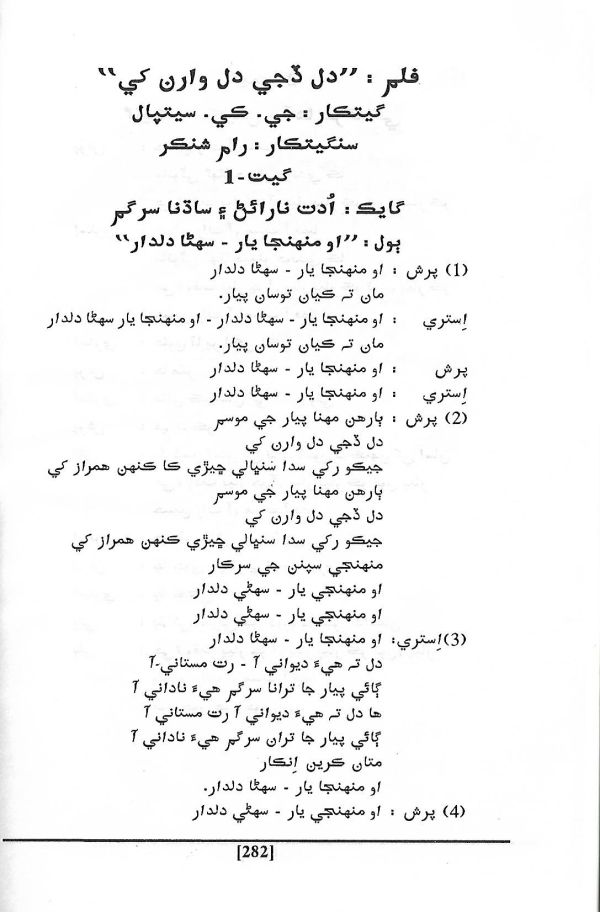 فلم : ”دل ڏجي دل وارن کي“
گيتڪار : جي. ڪي. سيتپال
سنگيتڪار : رام شنڪر
گيت-1
گايڪ : اُدت نارائڻ ۽ ساڌنا سرگم
ٻول : ”او منهنجا يار - سهڻا دلدار“
(1) پرش : او منهنجا يار - سهڻا دلدار
مان تہ ڪيان توسان پيار.
اِستري : او منهنجا يار - سهڻا دلدار - او منهنجا يار سهڻا دلدار
مان تہ ڪيان توسان پيار.
پرش : او منهنجا يار - سهڻا دلدار
اِستري : او منهنجا يار - سهڻا دلدار
(2) پرش : ٻارهن مهنا پيار جي موسم
دل ڏجي دل وارن کي
جيڪو رکي سدا سنڀالي ڇيڙي ڪا ڪنهن همراز کي
ٻارهن مهنا پيار جي موسم
دل ڏجي دل وارن کي
جيڪو رکي سدا سنڀالي ڇيڙي ڪنهن همراز کي
منهنجي سپنن جي سرڪار
او منهنجي يار - سهڻي دلدار
او منهنجي يار - سهڻي دلدار
(3) اِستري: او منهنجا يار - سهڻا دلدار
دل تہ هيءَ ديواني آ - رت مستاني-آ
ڳائي پيار جا ترانا سرگم هيءَ ناداني آ
ها دل تہ هيءَ ديواني آ رت مستاني آ
ڳائي پيار جا تران سرگم هيءَ ناداني آ
متان ڪرين اِنڪار
او منهنجا يار - سهڻا دلدار.
(4) پرش : او منهنجي يار - سهڻي دلدار
[282]